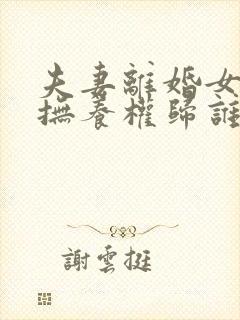 夫妻離婚女
撫養權歸誰
謝雲挺